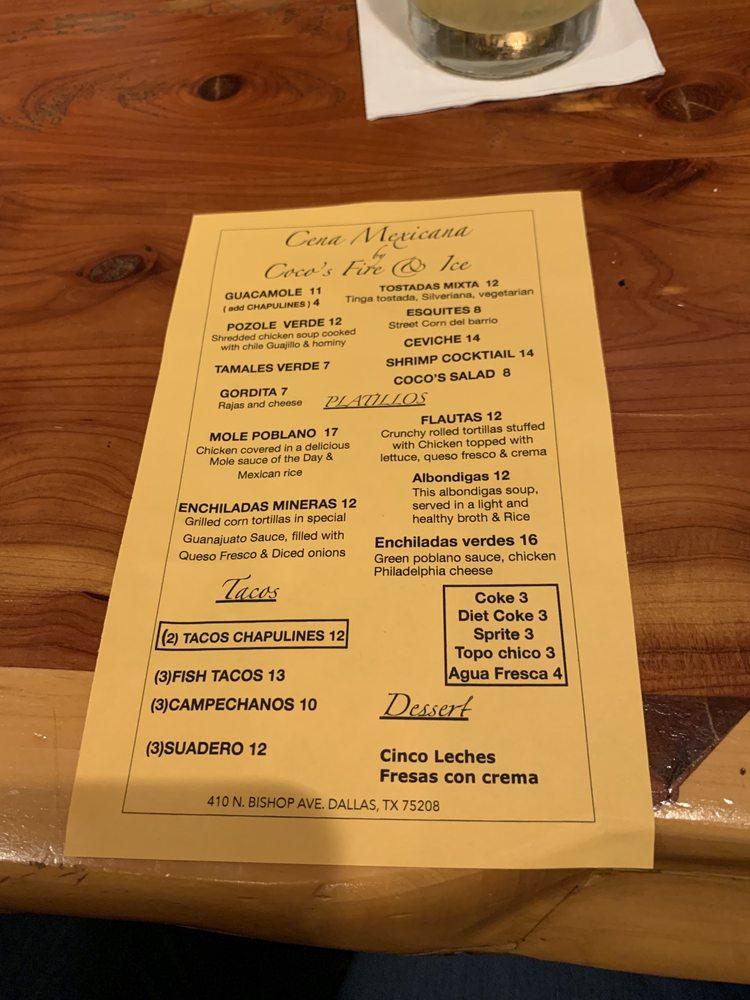 Cena Mexicana
by
Coco's Fire & Ice
GUACAMOLE 11
( add CHAPULINES ) 4
POZOLE VERDE 12
Shredded chicken soup cooked
with chile Guajillo & hominy
TAMALES VERDE 7
GORDITA 7
Rajas and cheese
TOSTADAS MIXTA 12
Tinga tostada, Silveriana, vegetarian
ESQUITES 8
Street Corn del barrio
CEVICHE 14
SHRIMP COCKTIAIL 14
COCO'S SALAD 8
PLATILLOS
MOLE POBLANO 17
Chicken covered in a delicious
Mole sauce of the Day &
Mexican rice
ENCHILADAS MINERAS 12
Grilled corn tortillas in special
Guanajuato Sauce, filled with
Queso Fresco & Diced onions
FLAUTAS 12
Crunchy rolled tortillas stuffed
with Chicken topped with
lettuce, queso fresco & crema
Albondigas 12
This albondigas soup,
served in a light and
healthy broth & Rice
Enchiladas verdes 16
Green poblano sauce, chicken
Philadelphia cheese
Tacos
(2) TACOS CHAPULINES 12
(3)FISH TACOS 13
(3)CAMPECHANOS 10
(3)SUADERO 12
Coke 3
Diet Coke 3
Sprite 3
Topo chico 3
Agua Fresca 4
Dessert
Cinco Leches
Fresas con crema
410 N. BISHOP AVE. DALLAS, TX 75208